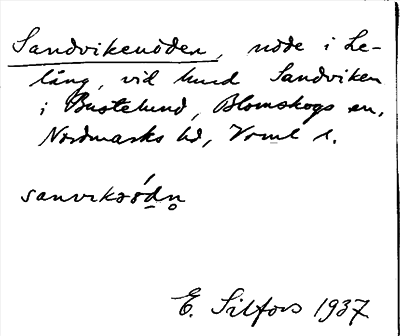 Sandvikenöden, node i Le-
lång, vid hmd Sandviken
i Bustelund, Blomskogs sn,
Nordmarks hd, Vrml l.
sanvikzö́dn̥
E. Silfors 1937